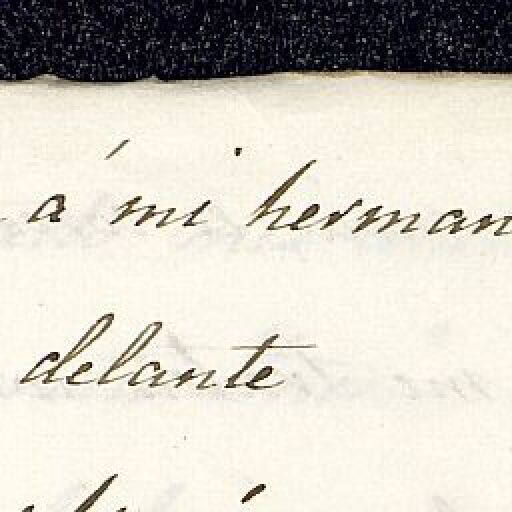 á mi herman
delante